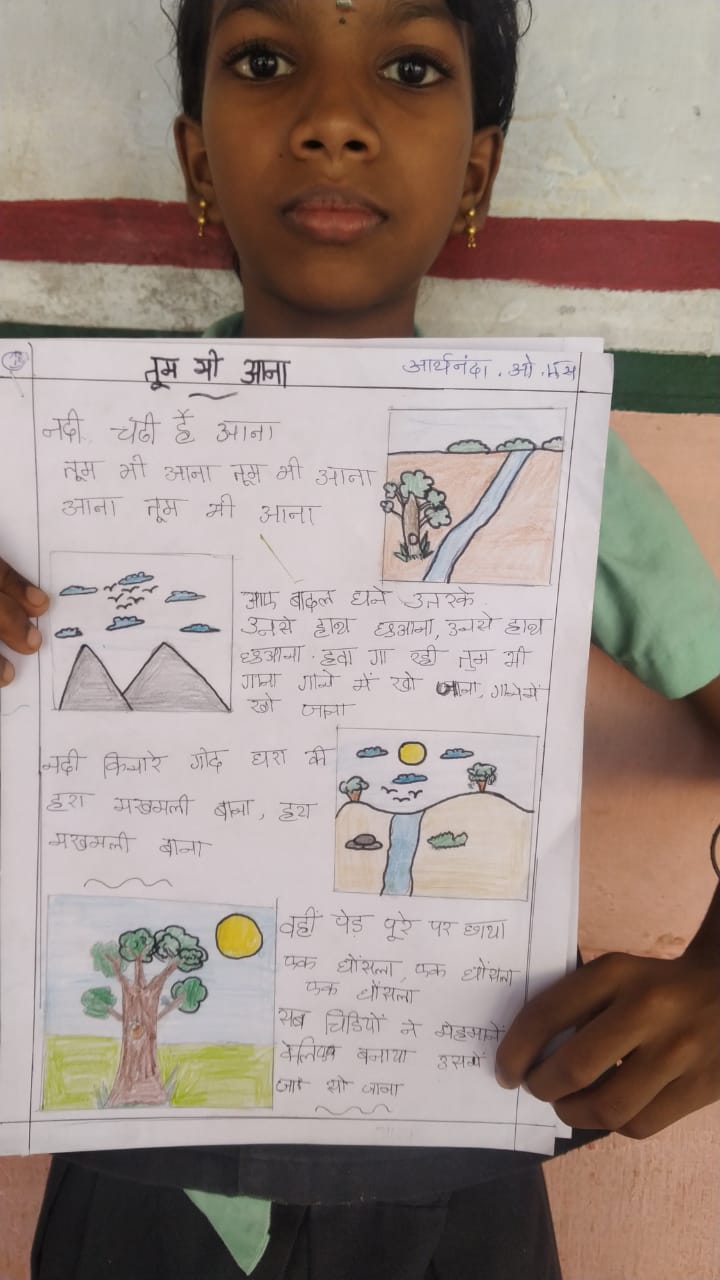 तूम भी आना
आर्यनंदा . ओ . एस
नदी चढी है आना
तूम भी आना तूम भी आना
आना तूम भी आना
आए बादल घने उतरके
उनसे हाथ छुआना, उनसे हाथ
छुआना हवा गा रही तुम भी
गाना गाने में खो जाना, गाने में
खो जाना
नदी किनारे गोद धरा की
हरा मखमली बाना, हरा
मखमली बाना
वहीं पेड़ पूरे पर छाया
एक घोंसला, एक घोंसला
एक घोंसला
सब चिडियों ने मेहमानों
बनाया उसमें
जा सो जाना